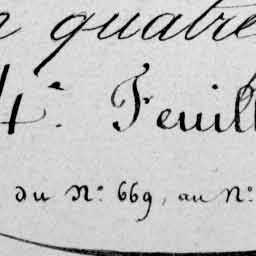 n quatre
4e. Feuill
du No. 669, au No.